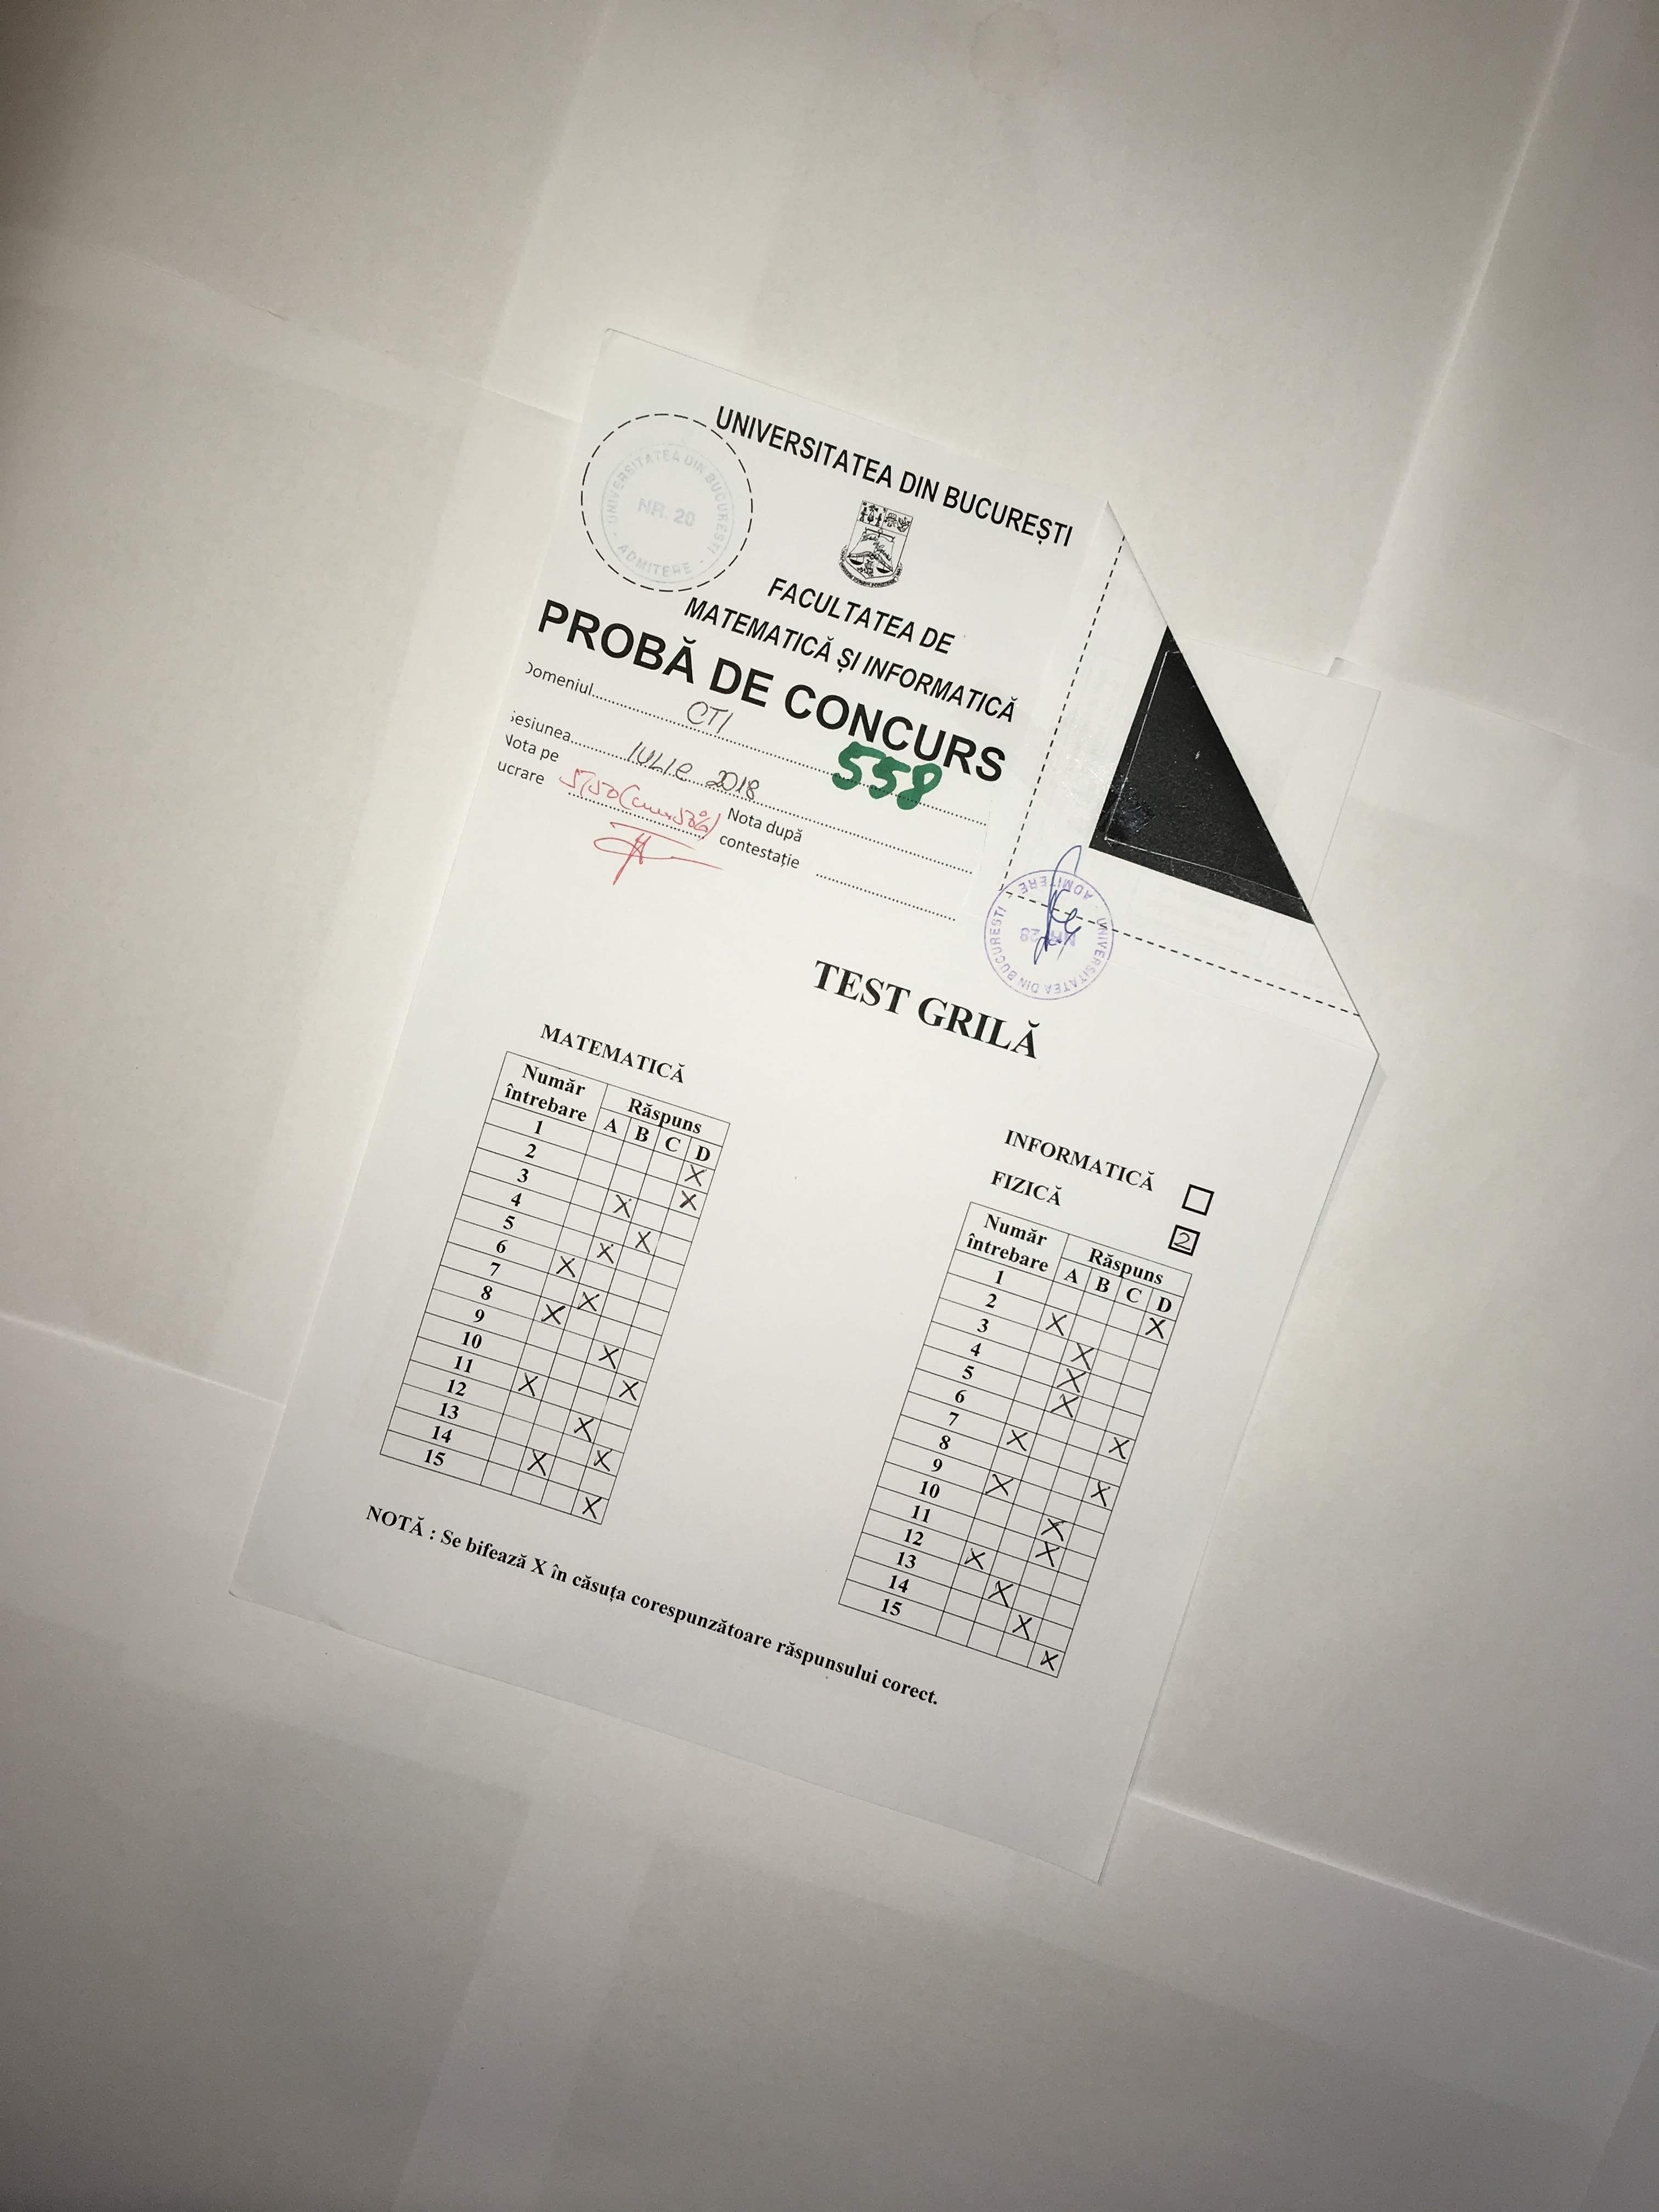 UNIVERSITATEA DIN BUCUREȘTI
UNIVERSITATEA DIN BUCUREȘTI · ADMITERE ·
NR. 20
FACULTATEA DE
MATEMATICĂ ȘI INFORMATICĂ
PROBĂ DE CONCURS
Domeniul CTI
558
Sesiunea IULIE 2018
Nota pe
lucrare
Nota după
contestație
UNIVERSITATEA DIN BUCUREȘTI · ADMITERE ·
NR. 28
TEST GRILĂ
MATEMATICĂ
Număr întrebare Răspuns
A B C D
1 X
2 X
3 X
4 X
5 X
6 X
7 X
8 X
9 X
10 X
11 X
12 X
13 X
14 X
15 X
INFORMATICĂ
FIZICĂ 2
Număr întrebare Răspuns
A B C D
1 X
2 X
3 X
4 X
5 X
6 X
7 X
8 X
9 X
10 X
11 X
12 X
13 X
14 X
15 X
NOTĂ : Se bifează X în căsuța corespunzătoare răspunsului corect.